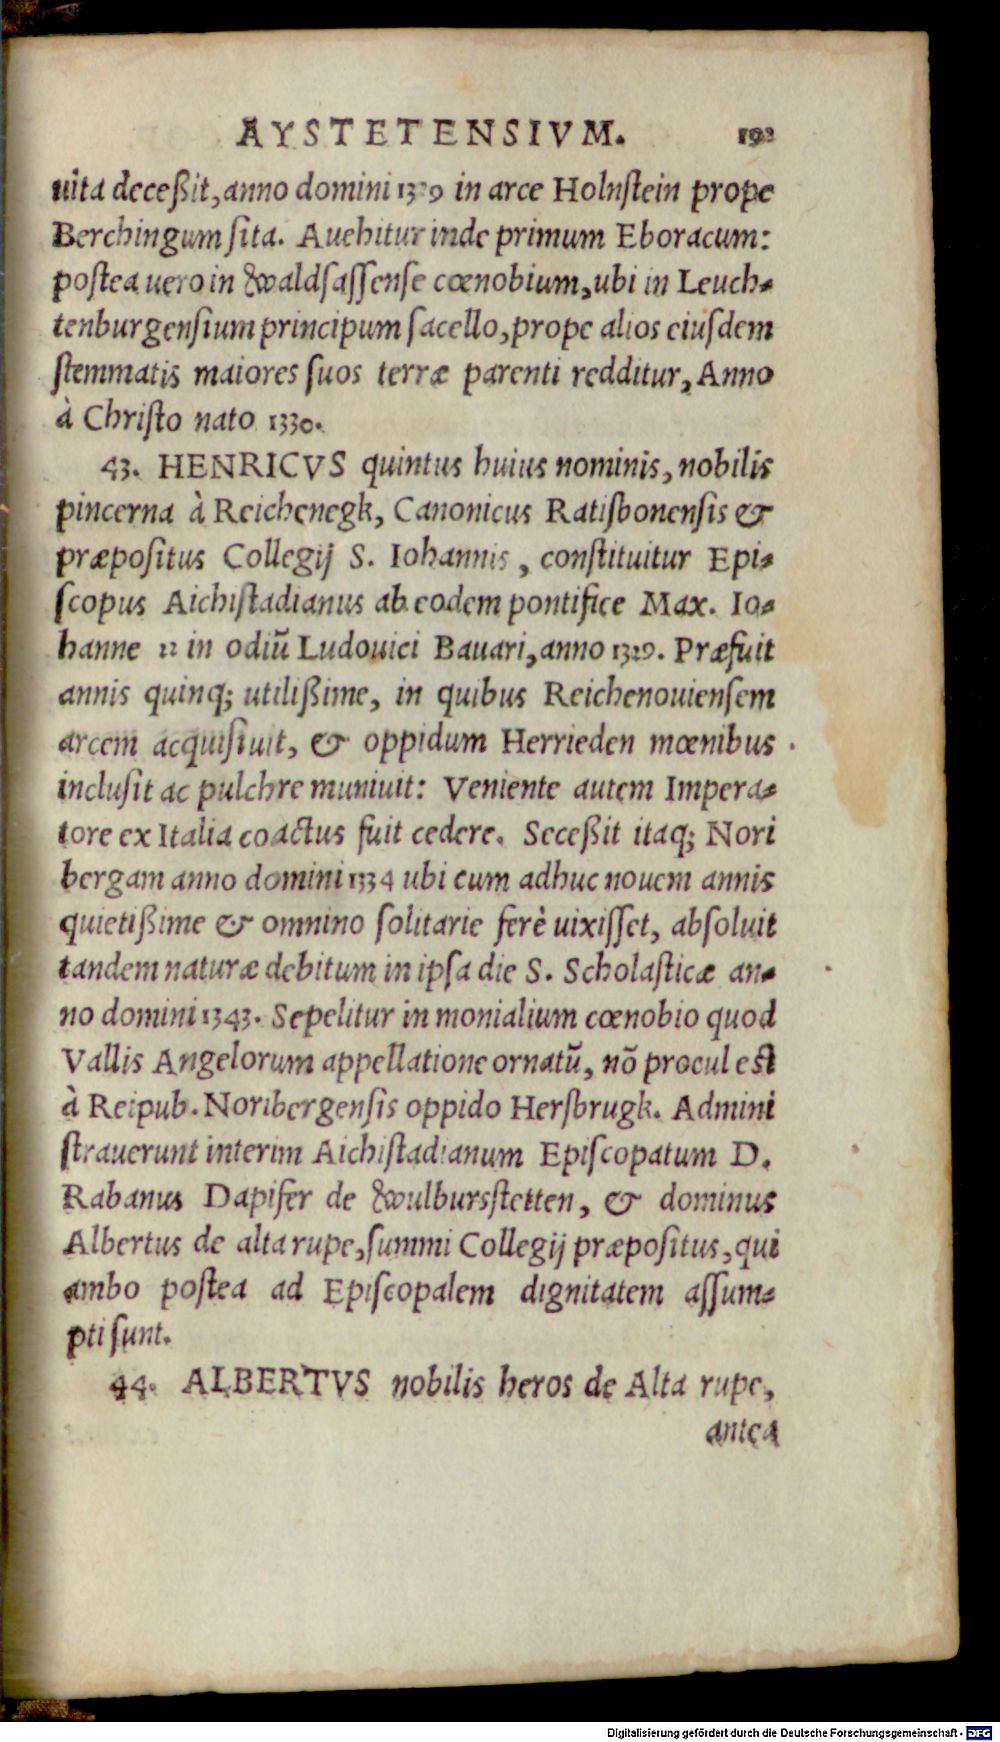 AYSTETENSIVM. 192
uita deceßit, anno domini 1329 in arce Holnſtein prope
Berchingum ſita. Auehitur inde primum Eboracum:
poſtea uero in Waldſaſſenſe cœnobium, ubi in Leuch-
tenburgenſium principum ſacello, prope alios eiuſdem
ſtemmatis maiores ſuos terræ parenti redditur, Anno
à Chriſto nato 1330.
43. HENRICVS quintus huius nominis, nobilis
pincerna à Reichenegk, Canonicus Ratiſbonenſis &
præpoſitus Collegij S. Iohannis, conſtituitur Epi-
ſcopus Aichiſtadianus ab eodem pontifice Max. Io-
hanne 22 in odiũ Ludouici Bauari, anno 1329. Præfuit
annis quinq; utilißime, in quibus Reichenouienſem
arcem acquiſiuit, & oppidum Herrieden mœnibus
incluſit ac pulchre muniuit: Veniente autem Impera-
tore ex Italia coactus fuit cedere. Seceßit itaq; Nori
bergam anno domini 1334 ubi cum adhuc nouem annis
quietißime & omnino ſolitarie ferè uixiſſet, abſoluit
tandem naturæ debitum in ipſa die S. Scholaſticæ an-
no domini 1343. Sepelitur in monialium cœnobio quod
Vallis Angelorum appellatione ornatũ, nõ procul eſt
à Reipub. Noribergenſis oppido Herſbrugk. Admini
ſtrauerunt interim Aichiſtadianum Epiſcopatum D.
Rabanus Dapifer de Wulbursſtetten, & dominus
Albertus de alta rupe, ſummi Collegij præpoſitus, qui
ambo poſtea ad Epiſcopalem dignitatem aſſum-
pti ſunt.
44. ALBERTVS nobilis heros de Alta rupe,
antea
Digitalisierung gefördert durch die Deutsche Forschungsgemeinschaft - DFG